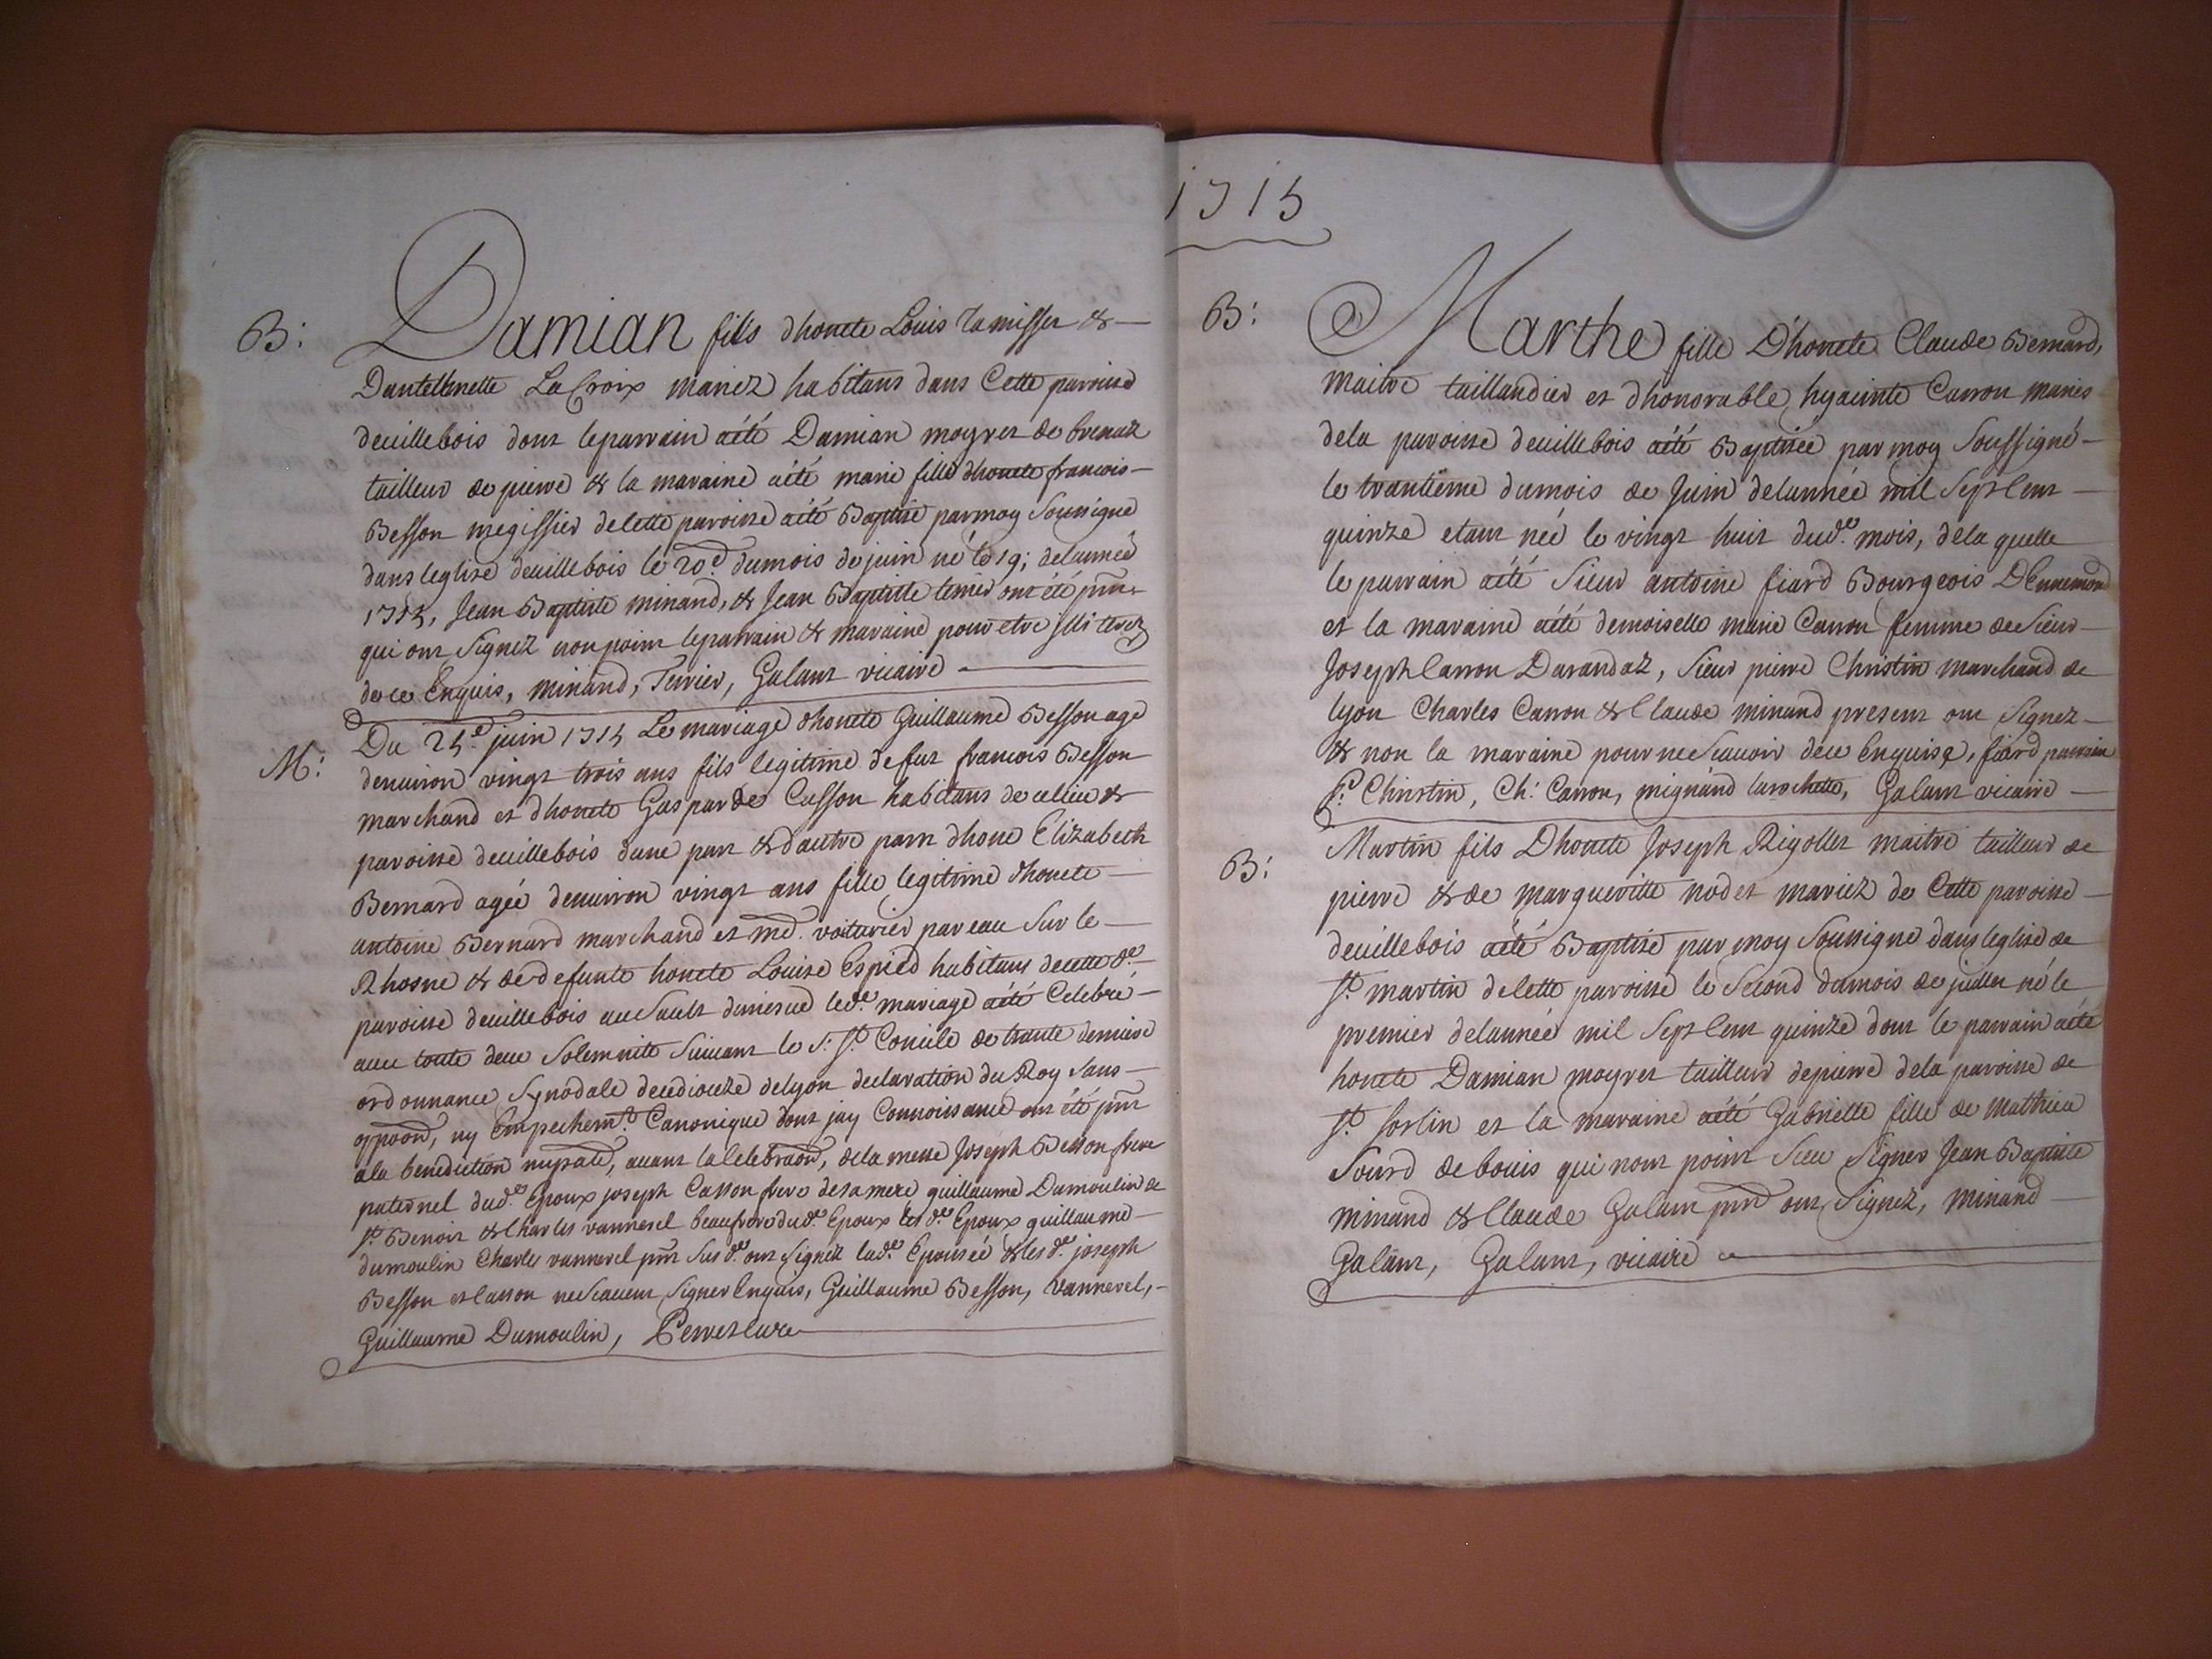 1715
B:
Damian fils dhonete Louis Tamisser &
Dantethnette La Croix mariez habitans dans Cette paroisse
deuillebois dont leparrain aété Damian moyret de brenaz
tailleur de pierre & la maraine aété marie fille dhonete francois
Besson megissier delette paroisse aété Baptisé parmoy Soussigné
dans leglise deuillebois le 20e dumois de juin né le 19; delannée
1715, Jean Baptiste minand, & Jean Baptiste terrier ont été pnts
qui ont Signez non point leparrain & maraine pour etre illiterez
de ce Enquis, minand, Terrier, Galant vicaire
M:
Du 25e juin 1715 Le mariage dhonete Guillaume Besson agé
denuiron vingt trois ans fils legitime defut francois Besson
marchand et dhonete Gasparde Casson habitans de
paroisse deuillebois dune part & dautre part dhone Elizabeth
Bernard agée denuiron vingt ans fille legitime dhonete
antoine Bernard marchand et md. voiturier pareau Sur le
Rhosne & de defunte honete Louise Espied habitans decette de.
paroisse deuillebois auSault ledt. mariage aété Celebré
auec toute deue Solemnite Suiuant le S: St. Concile de trante derniere
ordonnance Synodale decediouze delyon declaration du Roy Sans
oppoon, ny Empechemt. Canonique dont jay Connoissance ont été pnts
ala benediction nuptale, auant la Celebraon, dela messe Joseph Besson frere
paternel dudt. Epoux joseph Casson frere desamere guillaume Dumoulin de
St. Benoit & Charles vannerel beaufrere dudt. Epoux les dt. Epoux guillaume
dumoulin Charles vannerel pnts Sus dt. ont Signez ladt. Epousée & les dt. joseph
Besson et Casson neScauent Signer Enquis, Guillaume Besson, Vannerel,
Guillaume Dumoulin, Perret cure
B:
Marthe fille D'honete Claude Bernard,
maitre taillandier et dhonorable hyacinte Carron maries
dela paroisse deuillebois aété Baptisée par moy Soussigné
le trantième dumois de Juin delannée mil Sept Cent
quinze etant née le vingt huit dudt. mois, dela quelle
le parrain aété Sieur antoine fiard Bourgeois D'Ennemond
et la maraine aété demoiselle marie Carron femme de Sieur
Joseph Carron Darandaz, Sieur pierre Christin marchand de
lyon Charles Carron & Claude minand present ont Signez
& non la maraine pour ne Scauoir dece Enquise, fiard parrain
P: Christin, Ch: Carron, mignand larochette, Galant vicaire
B:
Martin fils Dhonete Joseph Rigollet maitre tailleur de
pierre & de margueritte nodet mariez de Cette paroisse
deuillebois aété Baptisé par moy Soussigne dans leglise de
St. martin delette paroisse le Second dumois de juillet né le
premier delannée mil Sept Cent quinze dont le parrain aété
honete Damian moyret tailleur depierre dela paroisse de
St. Sorlin et la maraine aété Gabrielle fille de Mathieu
Sourd de bouis qui nont point Sceu Signer Jean Baptiste
minand & Claude Galant pnts ont Signez, minand
Galant, Galant, vicaire